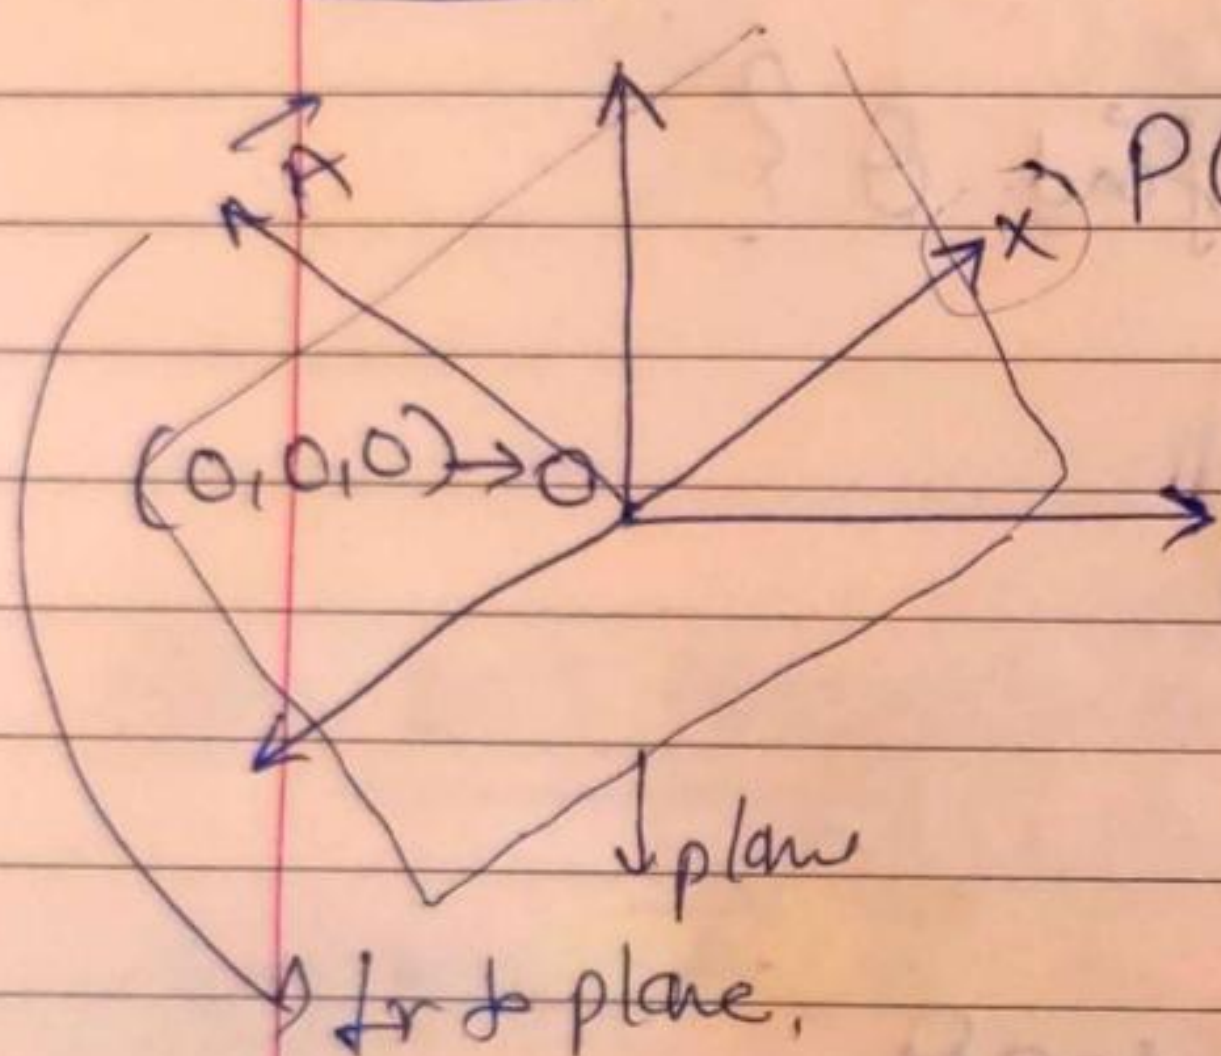 A
P(
x
(0,0,0)→O
plane
⊥r to plane.